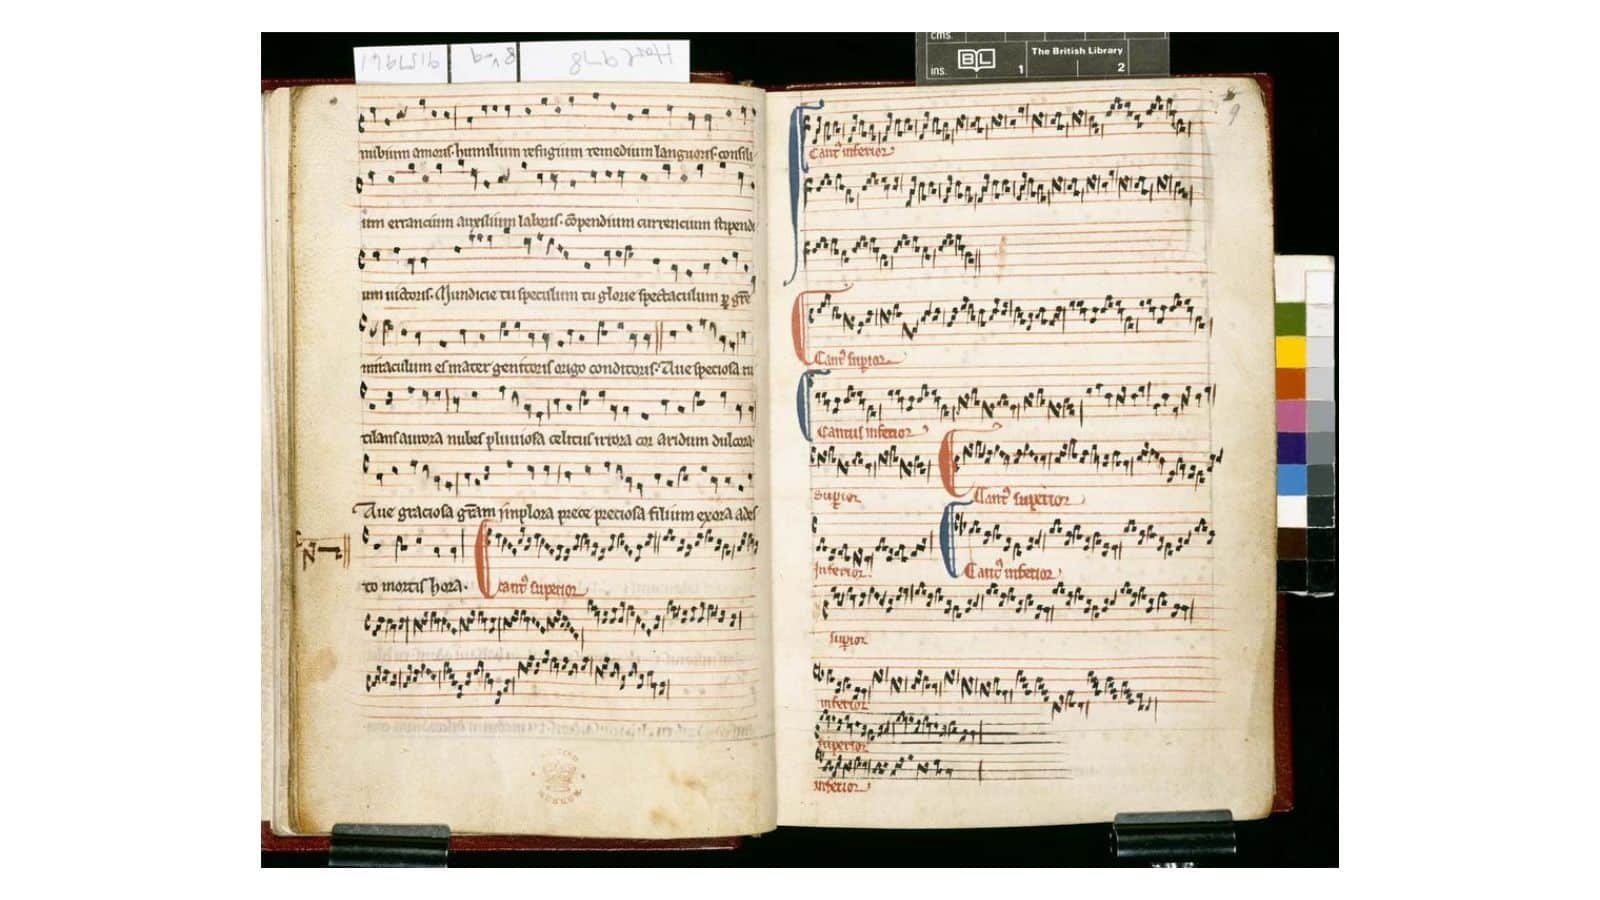 Harl 978
8v-9
cms.
The British Library
BL
ins. 1 2
9
nibium amoris. humilium refugium remedium languoris. consili
um errancium auxilium laboris. cōpendium currencium stipendi
um uictoris. Mundicie tu speculum tu glorie spectaculum
miraculum es mater genitoris origo conditoris. Aue speciosa ru
tilans aurora nubes pluuiosa celitus irrora cor aridum dulcora
Aue graciosa grām implora prece preciosa filium exora ades
to mortis hora.
cant9 superior
Cant9 inferior
Cant9 supior
Cantus inferior
Supior
Cant9 superior
Inferior
Cant9 inferior
supior
inferior
superior
inferior